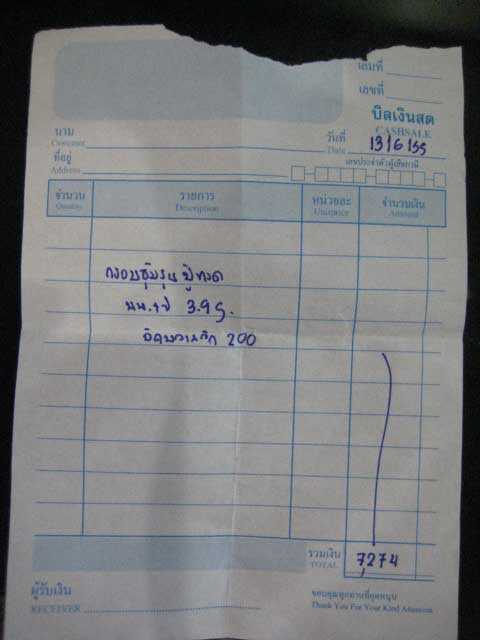 เล่มที่
เลขที่
บิลเงินสด
CASHSALE
นาม
Customer
วันที่
Date
13/6/55
ที่อยู่
Address
เลขประจำตัวผู้เสียภาษี
จำนวน
Quantity
รายการ
Description
หน่วยละ
Unitprice
จำนวนเงิน
Amount
กรอบ
3.9 g.
200
รวมเงิน
TOTAL
7,274
ผู้รับเงิน
RECEIVER
ขอบคุณทุกท่านที่อุดหนุน
Thank You For Your Kind Attention